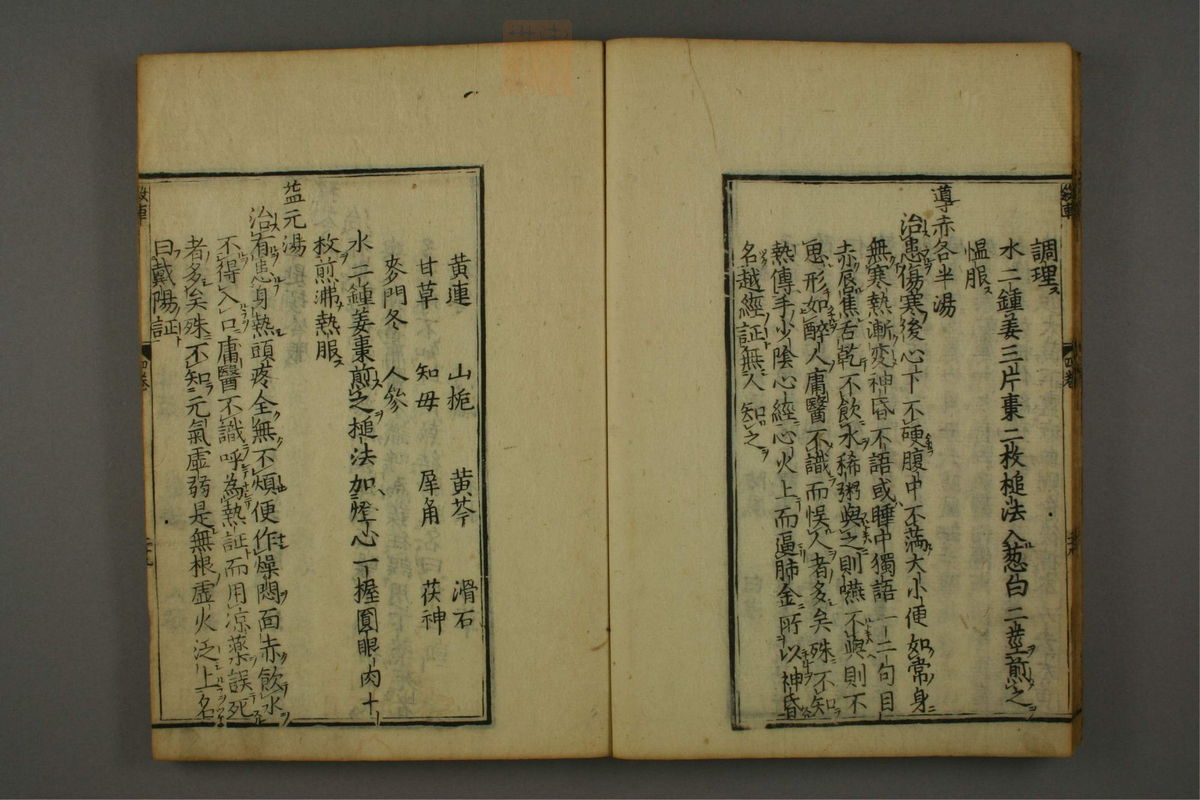 調理ス
水二鍾姜三片棗二枚槌法入葱白二莖煎之
愠服ス
導赤各半湯
治患傷寒後心下不硬腹中不滿大小便如常身
無寒熱漸変神昏不語或睡中獨語一二句目
赤唇焦舌乾不飲水稀粥與之則嚥不與則不
思形如醉人庸醫不識而悞人者多矣殊不知
熱傳手少陰心經心火上而逼肺金所以神昏
名越經証無人知之
黄連 山梔 黄芩 滑石
甘草 知母 犀角 茯神
麥門冬 人參
水二鍾姜棗煎之槌法加燈心一握圓眼肉十
枚煎沸熱服ス
益元湯
治有患身熱頭疼全無不煩便作燥悶面赤飲水
不得入口庸醫不識呼為熱証而用凉藥誤死
者多矣殊不知元氣虚弱是無根虚火泛上名
曰戴陽証